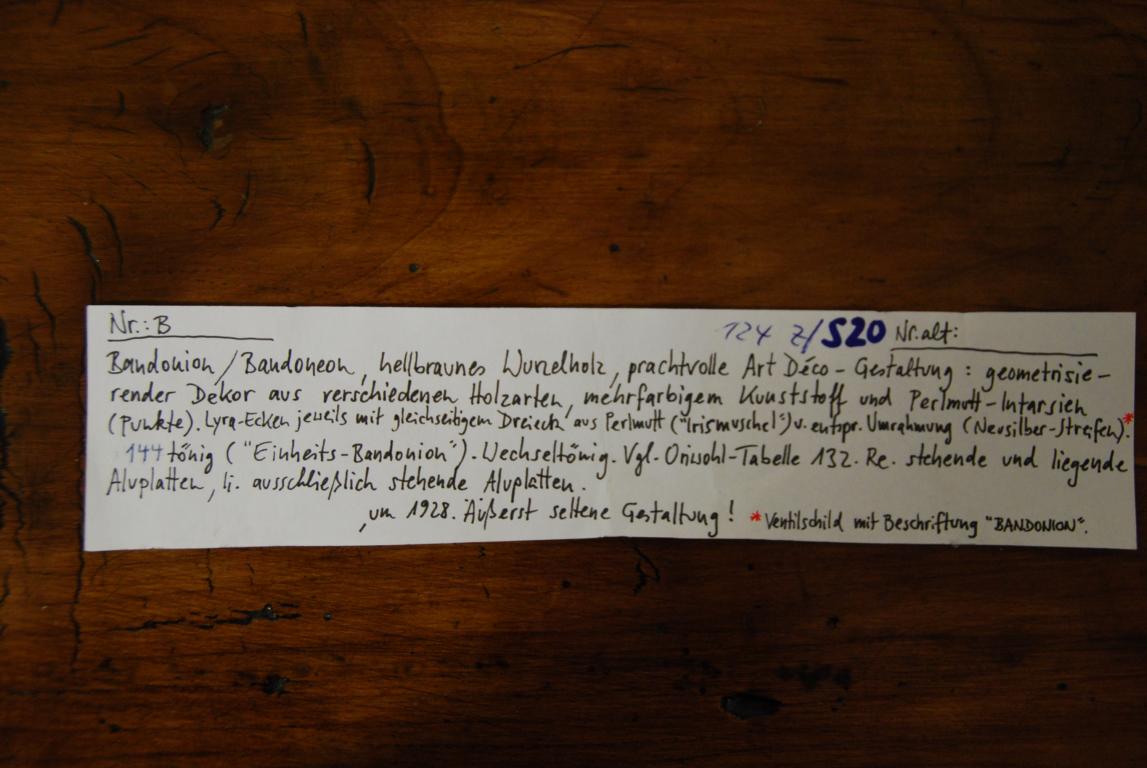 Nr.: B 124 z/S20 Nr. alt:
Bandonion/Bandoneon, hellbraunes Wurzelholz, prachtvolle Art Déco-Gestaltung: geometrisie-
render Dekor aus verschiedenen Holzarten, mehrfarbigem Kunststoff und Perlmutt-Intarsien
(Punkte). Lyra-Ecken jeweils mit gleichseitigem Dreieck aus Perlmutt ("Irismuschel") u. entspr. Umrahmung (Neusilber-Streifen).*
144 tönig ("Einheits-Bandonion"). Wechseltönig. Vgl. Oriwohl-Tabelle 132. Re. stehende und liegende
Aluplatten, li. ausschließlich stehende Aluplatten.
, um 1928. Äußerst seltene Gestaltung! * Ventilschild mit Beschriftung "BANDONION".